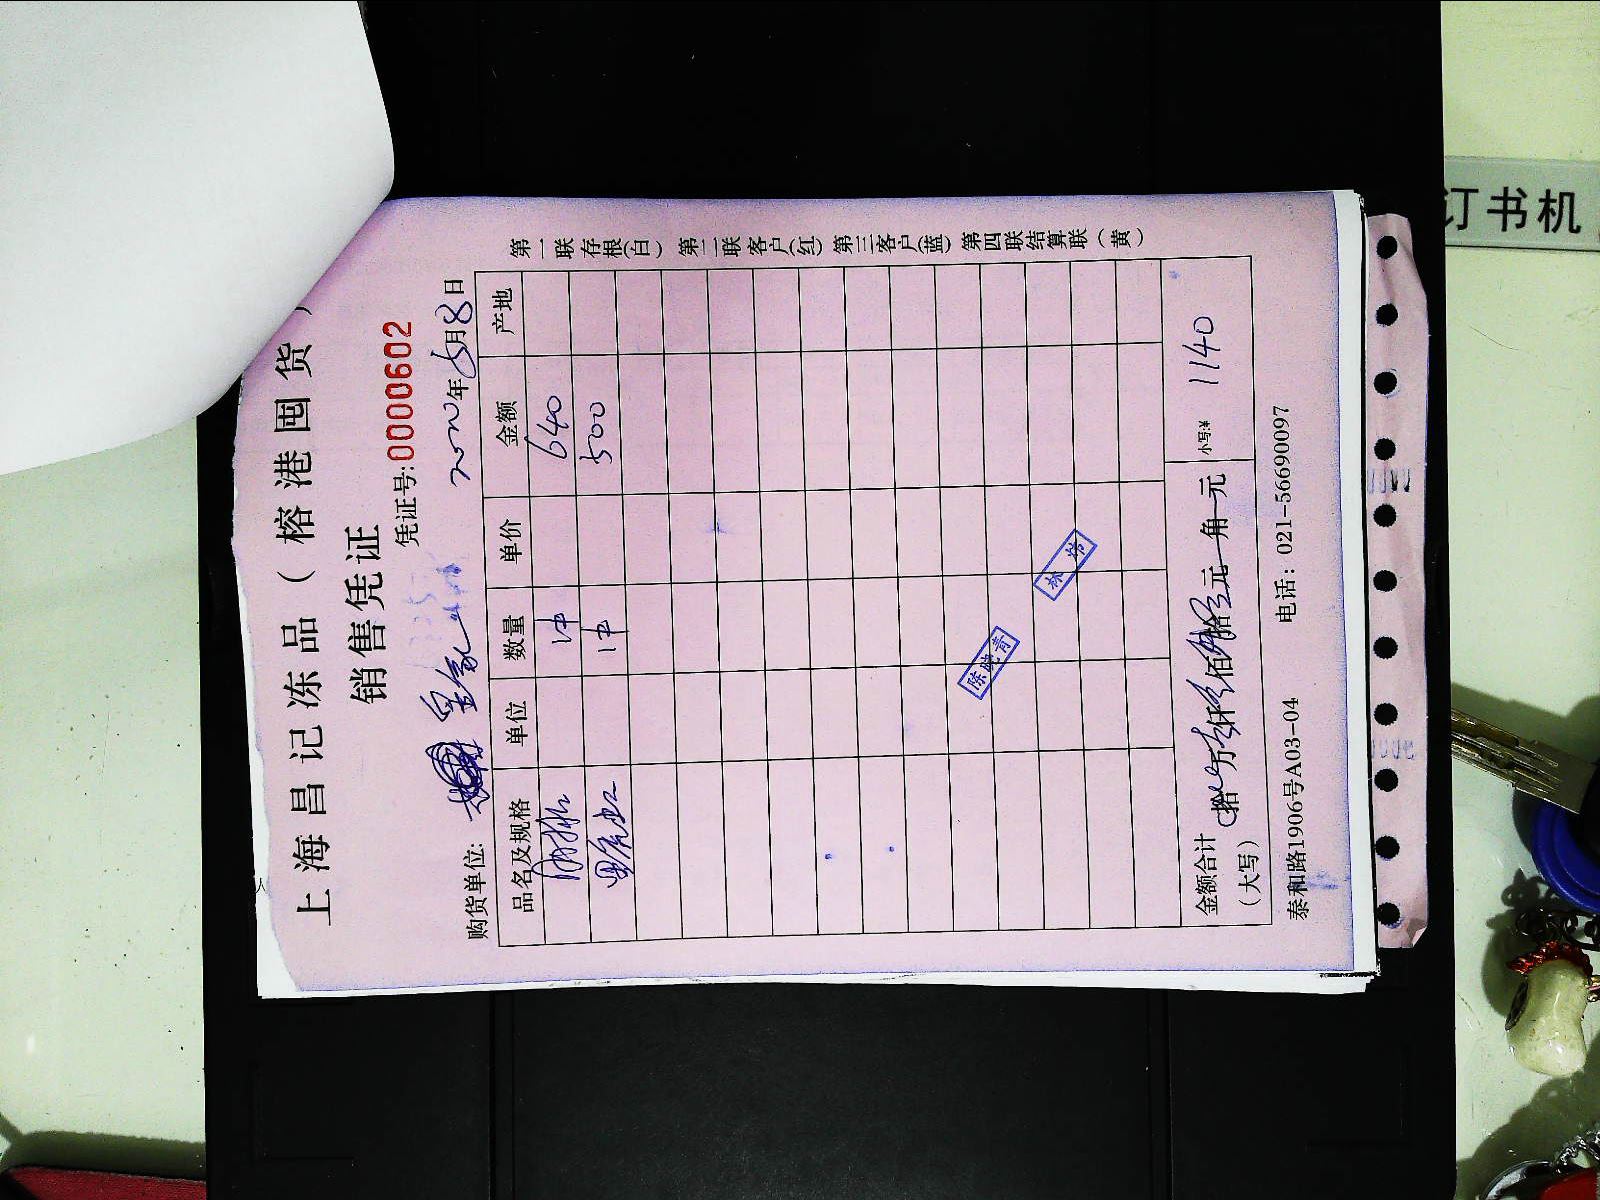 上海昌记冻品（榕港囤货）
销售凭证
凭证号:0000602
购货单位: 2020年5月8日
品名及规格 单位 数量 单价 金额 产地
1件 640
黑虎虾 1件 500
陈晓青
林炳
金额合计（大写） 拾 万 仟 佰 拾 元 角 元 小写:¥ 1140
泰和路1906号A03-04 电话：021-56690097
第一联存根(白) 第二联客户(红) 第三客户(蓝) 第四联结算联（黄）
订书机